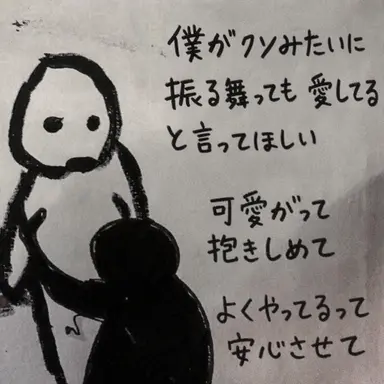 僕がクソみたいに
振る舞っても愛してる
と言ってほしい
可愛がって
抱きしめて
よくやってるって
安心させて